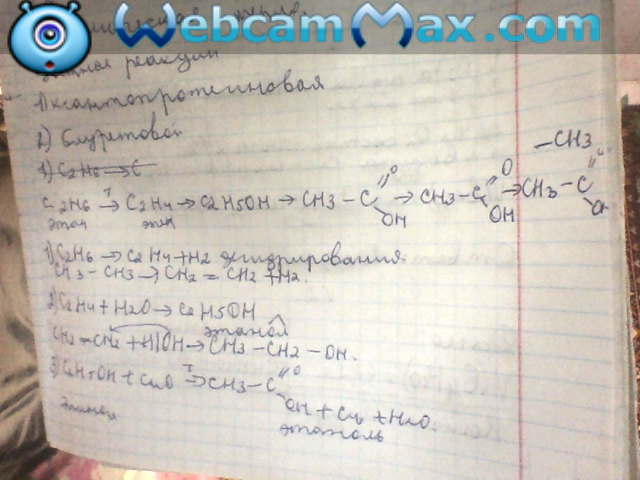 WebcamMax.com
реакции
1) Ксантопротеиновая
2) Биуретовой
1) C2H6 → C
–CH3
C2H6 → C2H4 → C2H5OH → CH3 – C =O OH → CH3 – C O OH → CH3 – C
этан этен
1) C2H6 → C2H4 + H2 дегидрирования.
CH3 – CH3 → CH2 = CH2 + H2.
2) C2H4 + H2O → C2H5OH
этанол
CH2 = CH2 + H|OH → CH3 – CH2 – OH.
3) C2H5OH + CuO → CH3 – C =O OH + Cu + H2O.
этанол этаналь